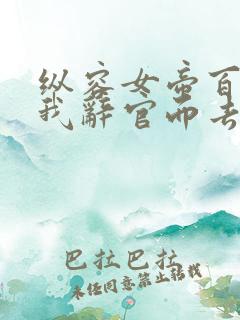 纵容女帝百
我辞官而去
巴拉巴拉
未经同意禁止转载